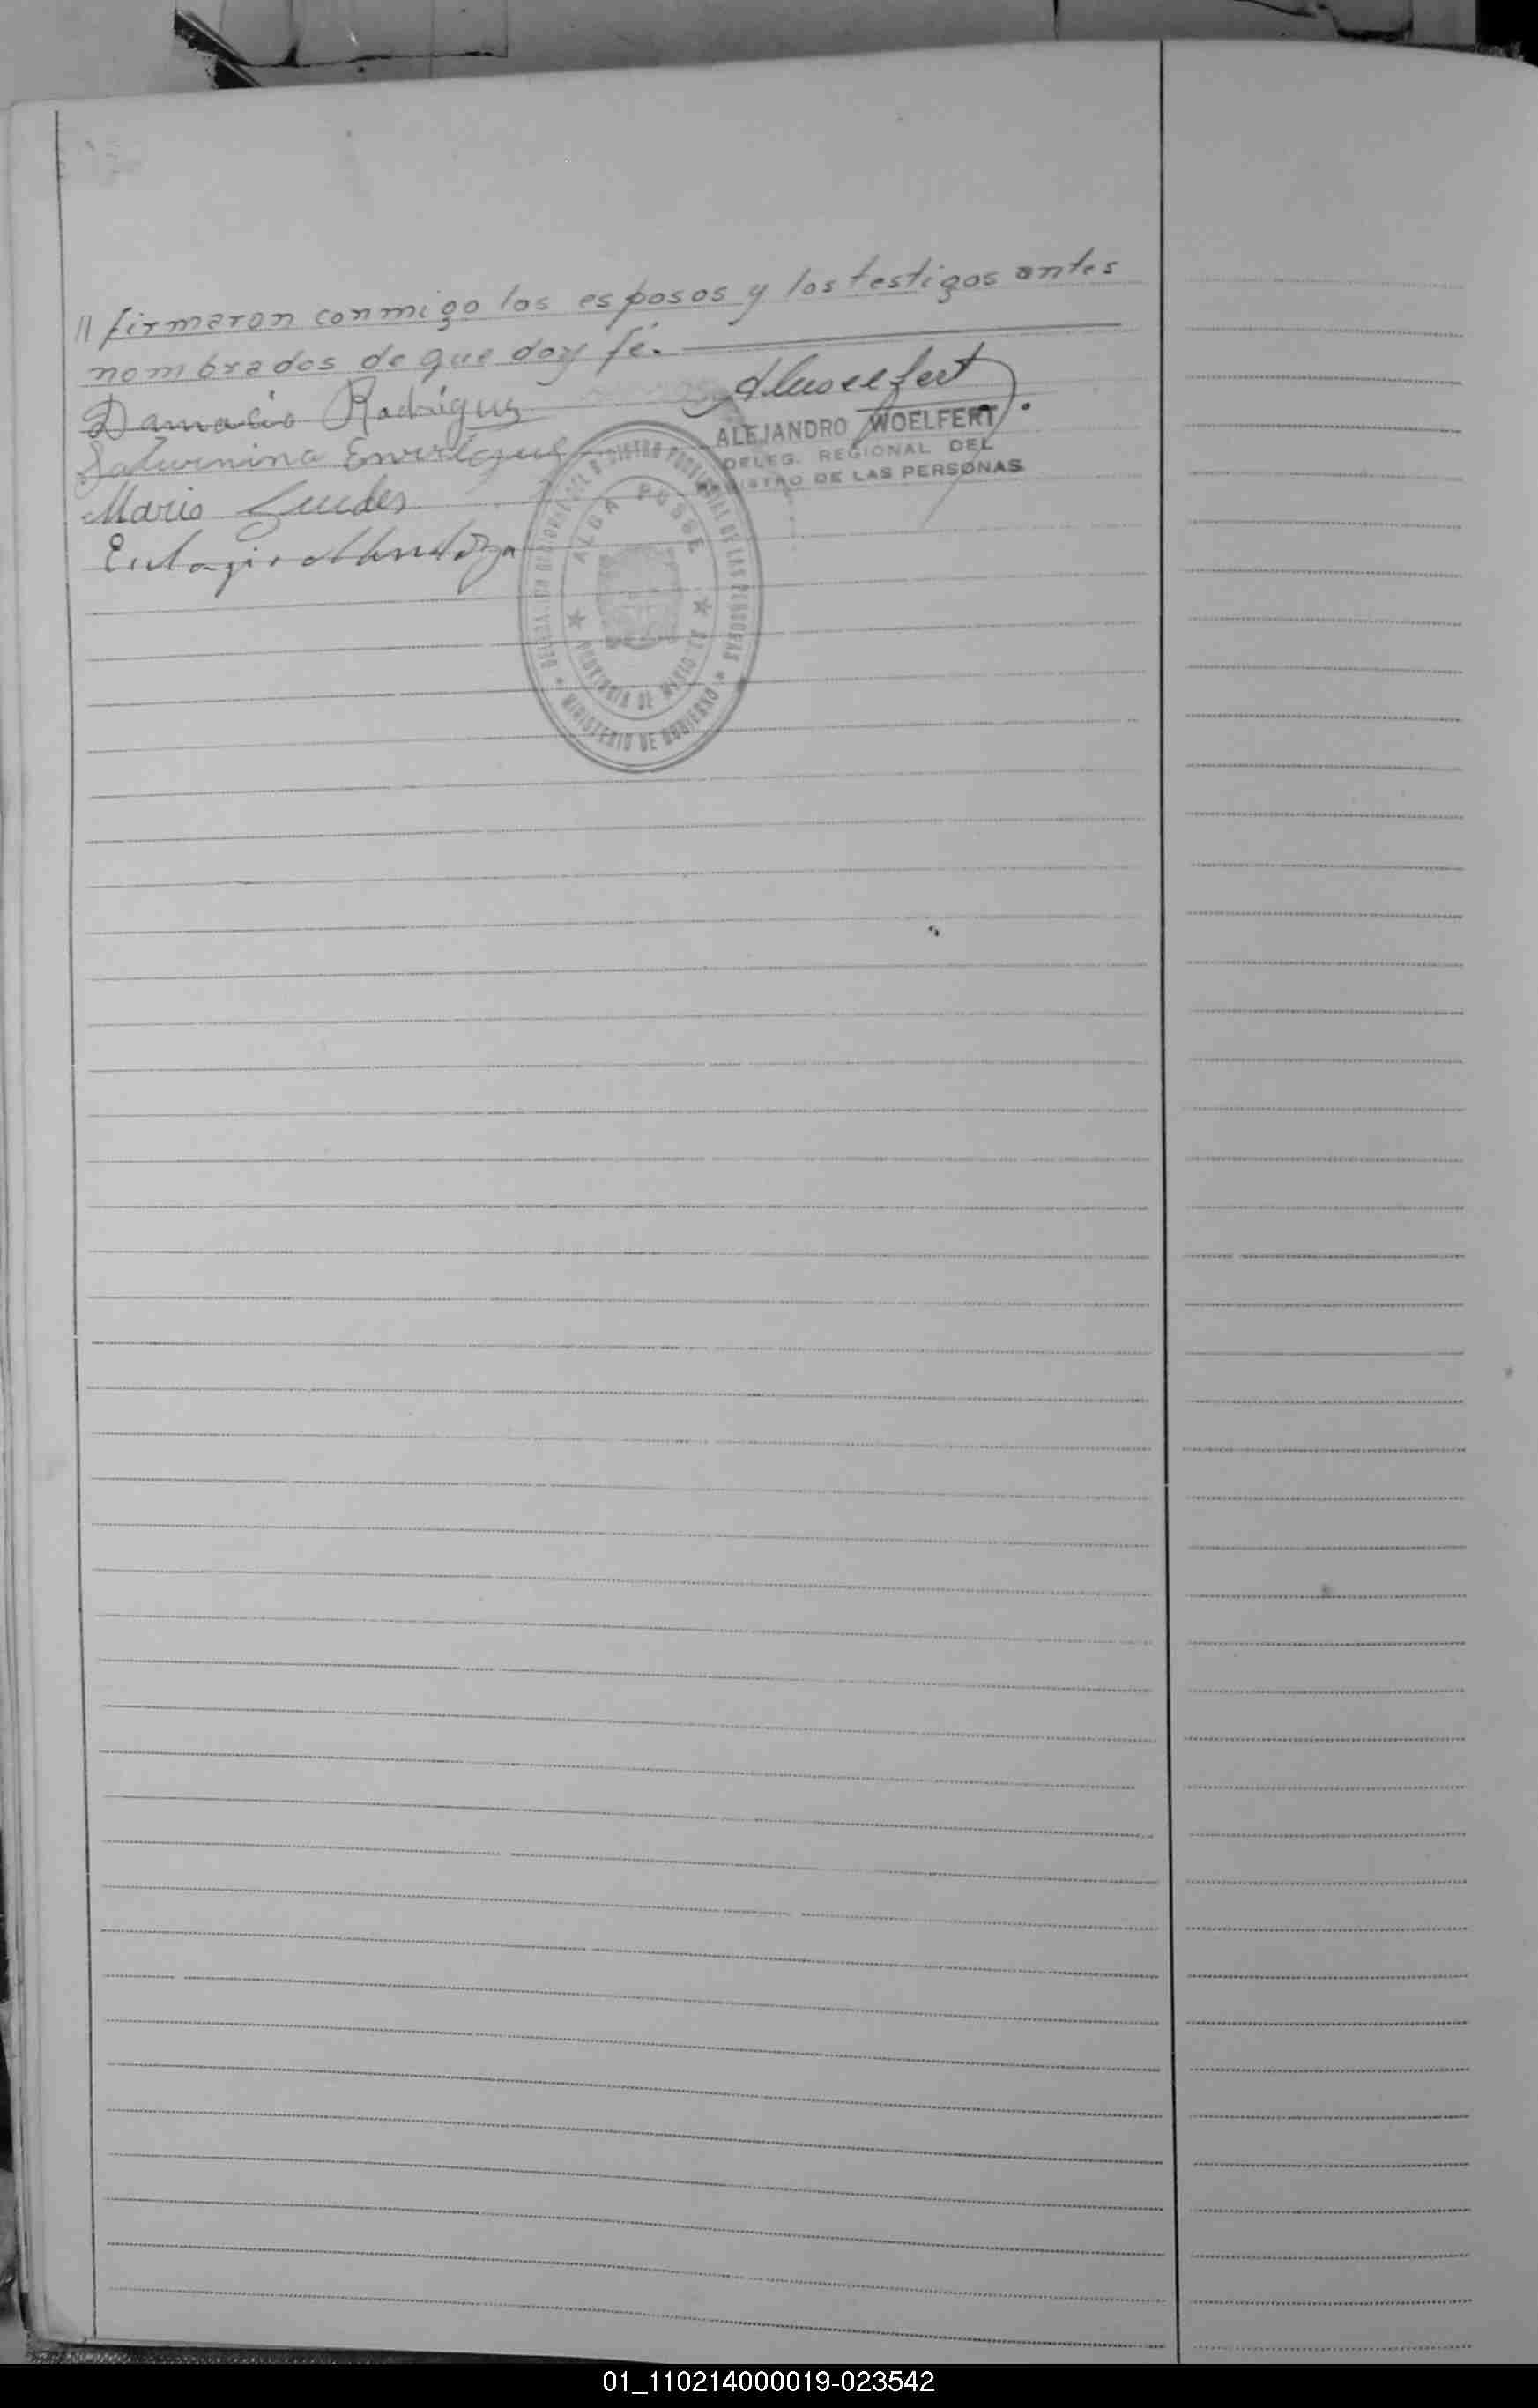 // firmaron conmigo los esposos y los testigos antes
nombrados de que doy fé.
Damacio Rodrigues
Saturnina Enriques
Mario
Eulogio Mendoza
ALEJANDRO WOELFERT
DELEG. REGIONAL DEL
REGISTRO DE LAS PERSONAS
DELEGACION REGIONAL DEL REGISTRO PROVINCIAL DE LAS PERSONAS
ALBA POSSE
PROVINCIA DE MISIONES
MINISTERIO DE GOBIERNO
01_110214000019-023542